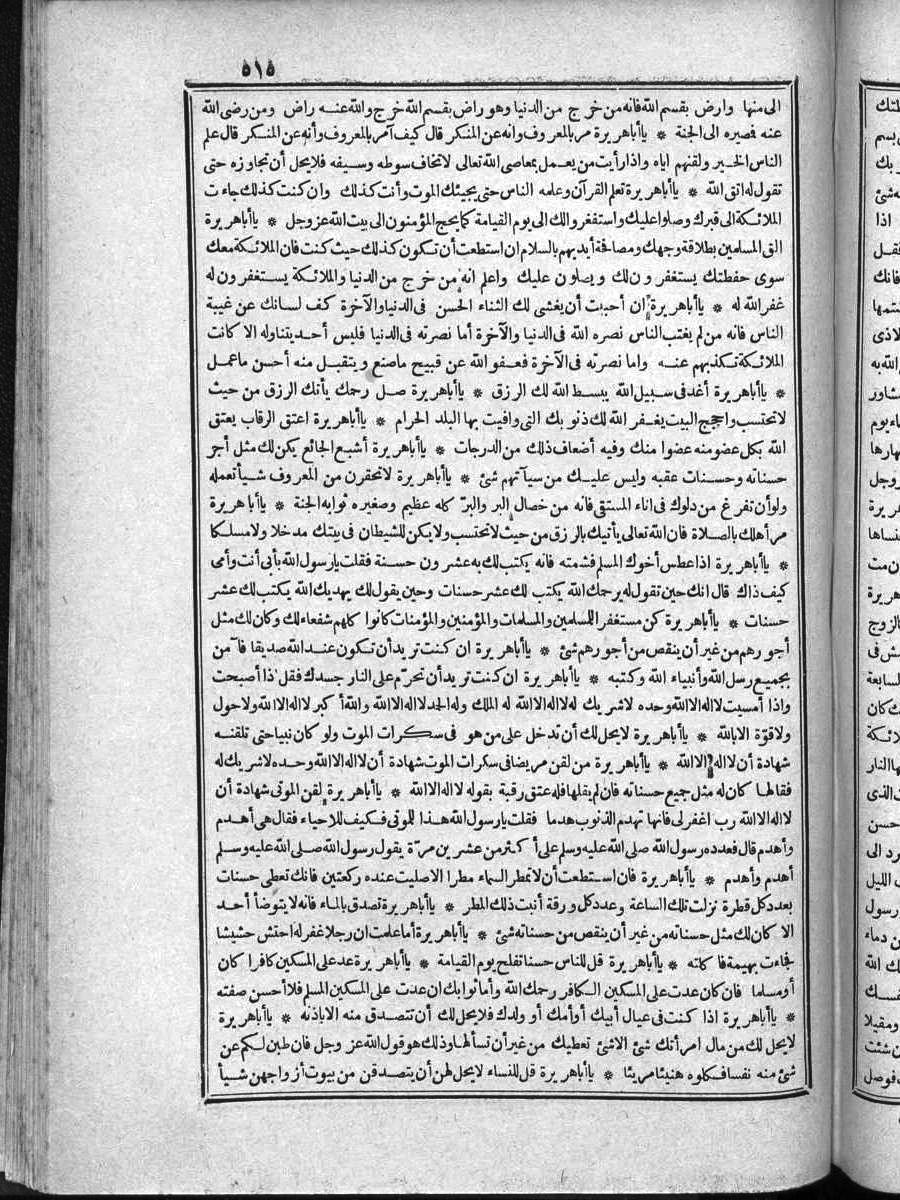 ٥١٥
الى منها وارض بقسم الله فانه من خرج من الدنيا وهو راض بقسم الله خرج والله عنه راض ومن رضى الله
عنه فصيره الى الجنة * ياأباهريرة مر بالمعروف وانه عن المنكر قال كيف آمر بالمعروف وأنه عن المنكر قال علم
الناس الخير ولقنهم اياه واذا رأيت من يعمل بمعاصى الله تعالى لاتخاف سوطه وسيفه فلا يحل أن تجاوزه حتى
تقول له اتق الله * ياأباهريرة تعلم القرآن وعلمه الناس حتى يجيئك الموت وأنت كذلك وان كنت كذلك جاءت
الملائكة الى قبرك وصلوا عليك واستغفروا لك الى يوم القيامة كما يحج المؤمنون الى بيت الله عز وجل * ياأباهريرة
الق المسلمين بطلاقة وجهك ومصافحة أيديهم بالسلام ان استطعت أن تكون كذلك حيث كنت فان الملائكة معك
سوى حفظتك يستغفرون لك ويصلون عليك واعلم انه من خرج من الدنيا والملائكة يستغفرون له
غفر الله له * ياأباهريرة ان أحببت أن يغشى لك الثناء الحسن فى الدنيا والآخرة كف لسانك عن غيبة
الناس فانه من لم يغتب الناس نصره الله فى الدنيا والآخرة أما نصرته فى الدنيا فليس أحد يتناوله الا كانت
الملائكة تكذبهم عنه واما نصرته فى الآخرة فعفو الله عن قبيح ماصنع ويتقبل منه أحسن ماعمل
* ياأباهريرة أغد فى سبيل الله يبسط الله لك الرزق * ياأباهريرة صل رحمك يأتك الرزق من حيث
لاتحتسب واحجج البيت يغفر الله لك ذنوبك التى وافيت بها البلد الحرام * ياأباهريرة اعتق الرقاب يعتق
الله بكل عضو منه عضوا منك وفيه أضعاف ذلك من الدرجات * ياأباهريرة أشبع الجائع يكن لك مثل أجر
حسناته وحسنات عقبه وليس عليك من سيآتهم شئ * ياأباهريرة لاتحقرن من المعروف شيأ تعمله
ولو أن تفرغ من دلوك فى اناء المستقى فانه من خصال البر والبر كله عظيم وصغيره ثوابه الجنة * ياأباهريرة
مر أهلك بالصلاة فان الله تعالى يأتيك بالرزق من حيث لاتحتسب ولا يكن للشيطان فى بيتك مدخلا ولا مسلكا
* ياأباهريرة اذا عطس أخوك المسلم فشمته فانه يكتب لك به عشرون حسنة فقلت يارسول الله بأبى أنت وأمى
كيف ذاك قال انك حين تقول له يرحمك الله يكتب لك عشر حسنات وحين يقول لك يهديك الله يكتب لك عشر
حسنات * ياأباهريرة كن مستغفرا للمسلمين والمسلمات والمؤمنين والمؤمنات كانوا كلهم شفعاء لك وكان لك مثل
أجورهم من غير أن ينقص من أجورهم شئ * ياأباهريرة ان كنت تريد أن تكون عند الله صديقا فآمن
بجميع رسل الله وأنبياء الله وكتبه * ياأباهريرة ان كنت تريد أن تحرّم على النار جسدك فقل اذا أصبحت
واذا أمسيت لااله الاالله وحده لاشريك له لااله الاالله له الملك وله الحمد لااله الاالله والله أكبر لااله الاالله ولاحول
ولاقوّة الابالله * ياأباهريرة لايحل لك أن تدخل على من هو فى سكرات الموت ولو كان نبيا حتى تلقنه
شهادة أن لااله الاالله * ياأباهريرة من لقن مريضا فى سكرات الموت شهادة أن لااله الاالله وحده لاشريك له
فقالها كان له مثل جميع حسناته فان لم يقلها فله عتق رقبة بقوله لااله الاالله * ياأباهريرة لقن الموتى شهادة أن
لااله الاالله رب اغفر لى فانها تهدم الذنوب هدما فقلت يارسول الله هذا للموتى فكيف للاحياء فقال هى أهدم
وأهدم قال فعدده رسول الله صلى الله عليه وسلم على أكثر من عشرين مرّة يقول رسول الله صلى الله عليه وسلم
أهدم وأهدم * ياأباهريرة فان استطعت أن لاتمطر السماء مطرا الاصليت عنده ركعتين فانك تعطى حسنات
بعدد كل قطرة نزلت تلك الساعة وعدد كل ورقة أنبت ذلك المطر * ياأباهريرة تصدق بالماء فانه لايتوضأ أحد
الا كان لك مثل حسناته من غير أن ينقص من حسناته شئ * ياأباهريرة أما علمت ان رجلا غفر له احتش حشيشا
فجاءت بهيمة فاكلته * ياأباهريرة قل للناس حسنا تفلح يوم القيامة * ياأباهريرة عد على المسكين كافرا كان
أو مسلما فان كان عدت على المسكين الكافر رحمك الله وأما ثوابك ان عدت على المسكين المسلم فلا أحسن صفته
* ياأباهريرة اذا كنت فى عيال أبيك أو أمك أو ولدك فلا يحل لك أن تتصدق منه الاباذنه * ياأباهريرة
لايحل لك من مال امرأتك شئ الاشئ تعطيك من غير أن تسألها وذلك هو قول الله عز وجل فان طبن لكم عن
شئ منه نفسا فكلوه هنيئا مريئا * ياأباهريرة قل للنساء لايحل لهن أن يتصدقن من بيوت أزواجهن شيأ